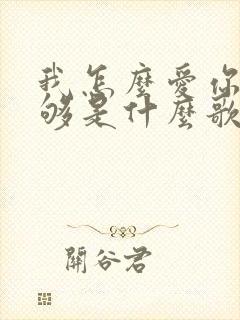 我怎麼愛你
够是什麼歌
關谷君